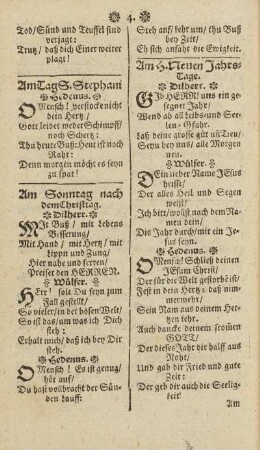 4.
Tod/ Sünd und Teuffel sind
verjagt:
Trutz/ daß dich Einer weiter
plagt!
Am Tag S. Stephani
Hedenus.
O Mensch! verstocke nicht
dein Hertz/
Gott leidet weder Schimpff/
noch Schertz:
Thu heute Buß: Heut ist noch
Raht:
Denn morgen möcht es seyn
zu spat!
Am Sonntag nach
dem Christtag.
Dilherr.
Mit Buß/ mit Lebens
Besserung/
Mit Hand/ mit Hertz/ mit
Lippen und Zung/
Hier nahe und ferren/
Preiset den HERREN.
Wülfer.
HErr! solt Du seyn zum
Fall gestellt/
So vieler/ in der bösen Welt/
So ist das/ um was ich Dich
fleh:
Erhalt mich/ daß ich bey Dir
steh.
Hedenus.
O Mensch! Es ist genug/
hör auf/
Du hast vollbracht der Sün-
den Lauff:
Steh auf/ kehr um/ thu Buß
bey Zeit/
Eh sich anfäht die Ewigkeit.
Am H. Neuen Jahrs-
Tage.
Dilherr.
Gib HERR! uns ein ge-
segnet Jahr/
Wend ab all Leibs- und See-
len- Gfahr.
Laß deine grosse Güt und Treu/
Seyn bey uns/ alle Morgen
neu.
Wülfer.
Dein lieber Name JEsus
heisst/
Der alles Heil und Segen
weist/
Ich bitt/ wollst nach dem Na-
men dein/
Dis Jahr durch/ mir ein Je-
sus seyn.
Hedenus.
O Mensch! Schließ deinen
JEsum Christ/
Der für die Welt gestorb ist/
Fest in dein Hertz: daß nim-
mermehr/
Sein Nam aus deinem Her-
tzen kehr.
Auch dancke deinem frommen
GOTT/
Der dieses Jahr dir half aus
Noht/
Und gab dir Fried und gute
Zeit:
Der geb dir auch die Seelig-
keit!
Am